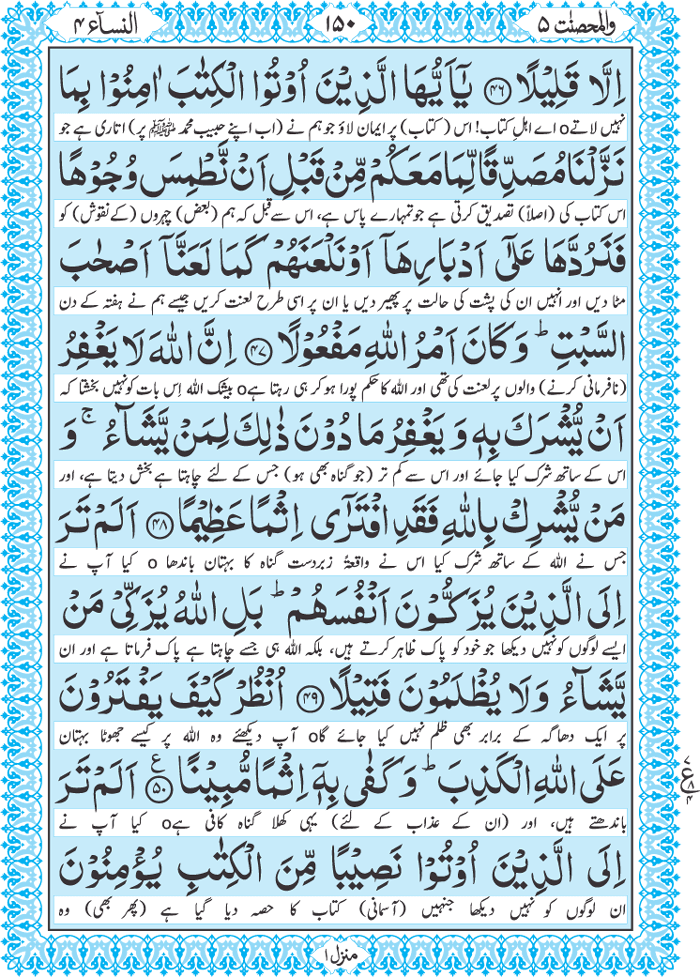 والمحصنت ۵
۱۵۰
النسآء ۴
اِلَّا قَلِیْلًا ﴿۴۶﴾ یٰۤاَیُّهَا الَّذِیْنَ اُوْتُوا الْكِتٰبَ اٰمِنُوْا بِمَا
نہیں لاتےo اے اہلِ کتاب! اس (کتاب) پر ایمان لاؤ جو ہم نے (اب اپنے حبیب محمد ﷺ پر) اتاری ہے جو
نَزَّلْنَا مُصَدِّقًا لِّمَا مَعَكُمْ مِّنْ قَبْلِ اَنْ نَّطْمِسَ وُجُوْهًا
اس کتاب کی (اصلاً) تصدیق کرتی ہے جو تمہارے پاس ہے، اس سے قبل کہ ہم (بعض) چہروں (کے نقوش) کو
فَنَرُدَّهَا عَلٰۤی اَدْبَارِهَاۤ اَوْ نَلْعَنَهُمْ كَمَا لَعَنَّاۤ اَصْحٰبَ
مٹا دیں اور انہیں ان کی پشت کی حالت پر پھیر دیں یا ان پر اسی طرح لعنت کریں جیسے ہم نے ہفتہ کے دن
السَّبْتِ ؕ وَ كَانَ اَمْرُ اللّٰهِ مَفْعُوْلًا ﴿۴۷﴾ اِنَّ اللّٰهَ لَا یَغْفِرُ
(نافرمانی کرنے) والوں پر لعنت کی تھی اور اللہ کا حکم پورا ہو کر ہی رہتا ہےo بیشک اللہ اِس بات کو نہیں بخشتا کہ
اَنْ یُّشْرَكَ بِهٖ وَ یَغْفِرُ مَا دُوْنَ ذٰلِكَ لِمَنْ یَّشَآءُ ۚ وَ
اس کے ساتھ شرک کیا جائے اور اس سے کم تر (جو گناہ بھی ہو) جس کے لئے چاہتا ہے بخش دیتا ہے، اور
مَنْ یُّشْرِكْ بِاللّٰهِ فَقَدِ افْتَرٰۤی اِثْمًا عَظِیْمًا ﴿۴۸﴾ اَلَمْ تَرَ
جس نے اللہ کے ساتھ شرک کیا اس نے واقعۃً زبردست گناہ کا بہتان باندھا o کیا آپ نے
اِلَی الَّذِیْنَ یُزَكُّوْنَ اَنْفُسَهُمْ ؕ بَلِ اللّٰهُ یُزَكِّیْ مَنْ
ایسے لوگوں کو نہیں دیکھا جو خود کو پاک ظاہر کرتے ہیں، بلکہ اللہ ہی جسے چاہتا ہے پاک فرماتا ہے اور ان
یَّشَآءُ وَ لَا یُظْلَمُوْنَ فَتِیْلًا ﴿۴۹﴾ اُنْظُرْ كَیْفَ یَفْتَرُوْنَ
پر ایک دھاگہ کے برابر بھی ظلم نہیں کیا جائے گاo آپ دیکھئے وہ اللہ پر کیسے جھوٹا بہتان
عَلَی اللّٰهِ الْكَذِبَ ؕ وَ كَفٰی بِهٖۤ اِثْمًا مُّبِیْنًا ﴿۵۰﴾ ع اَلَمْ تَرَ
باندھتے ہیں، اور (ان کے عذاب کے لئے) یہی کھلا گناہ کافی ہےo کیا آپ نے
اِلَی الَّذِیْنَ اُوْتُوْا نَصِیْبًا مِّنَ الْكِتٰبِ یُؤْمِنُوْنَ
ان لوگوں کو نہیں دیکھا جنہیں (آسمانی) کتاب کا حصہ دیا گیا ہے (پھر بھی) وہ
۷
ع ۸
۴
منزل ۱